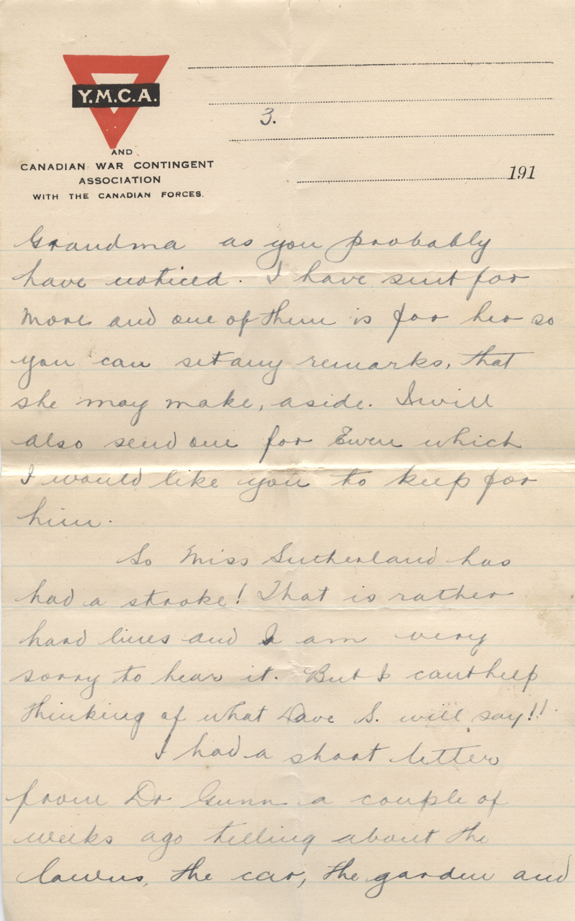 Y.M.C.A.
AND
CANADIAN WAR CONTINGENT
ASSOCIATION
WITH THE CANADIAN FORCES.
3.
191
Grandma as you probably
have noticed. I have sent for
more and one of them is for her so
you can set any remarks, that
she may make, aside. I will
also send one for Ewen which
I would like you to keep for
him.
So Miss Sutherland has
had a stroke! That is rather
hard lines and I am very
sorry to hear it. But I cant help
thinking of what Dave S. will say!!
I had a short letter
from Dr Gunn a couple of
weeks ago telling about the
lawns, the car, the garden and